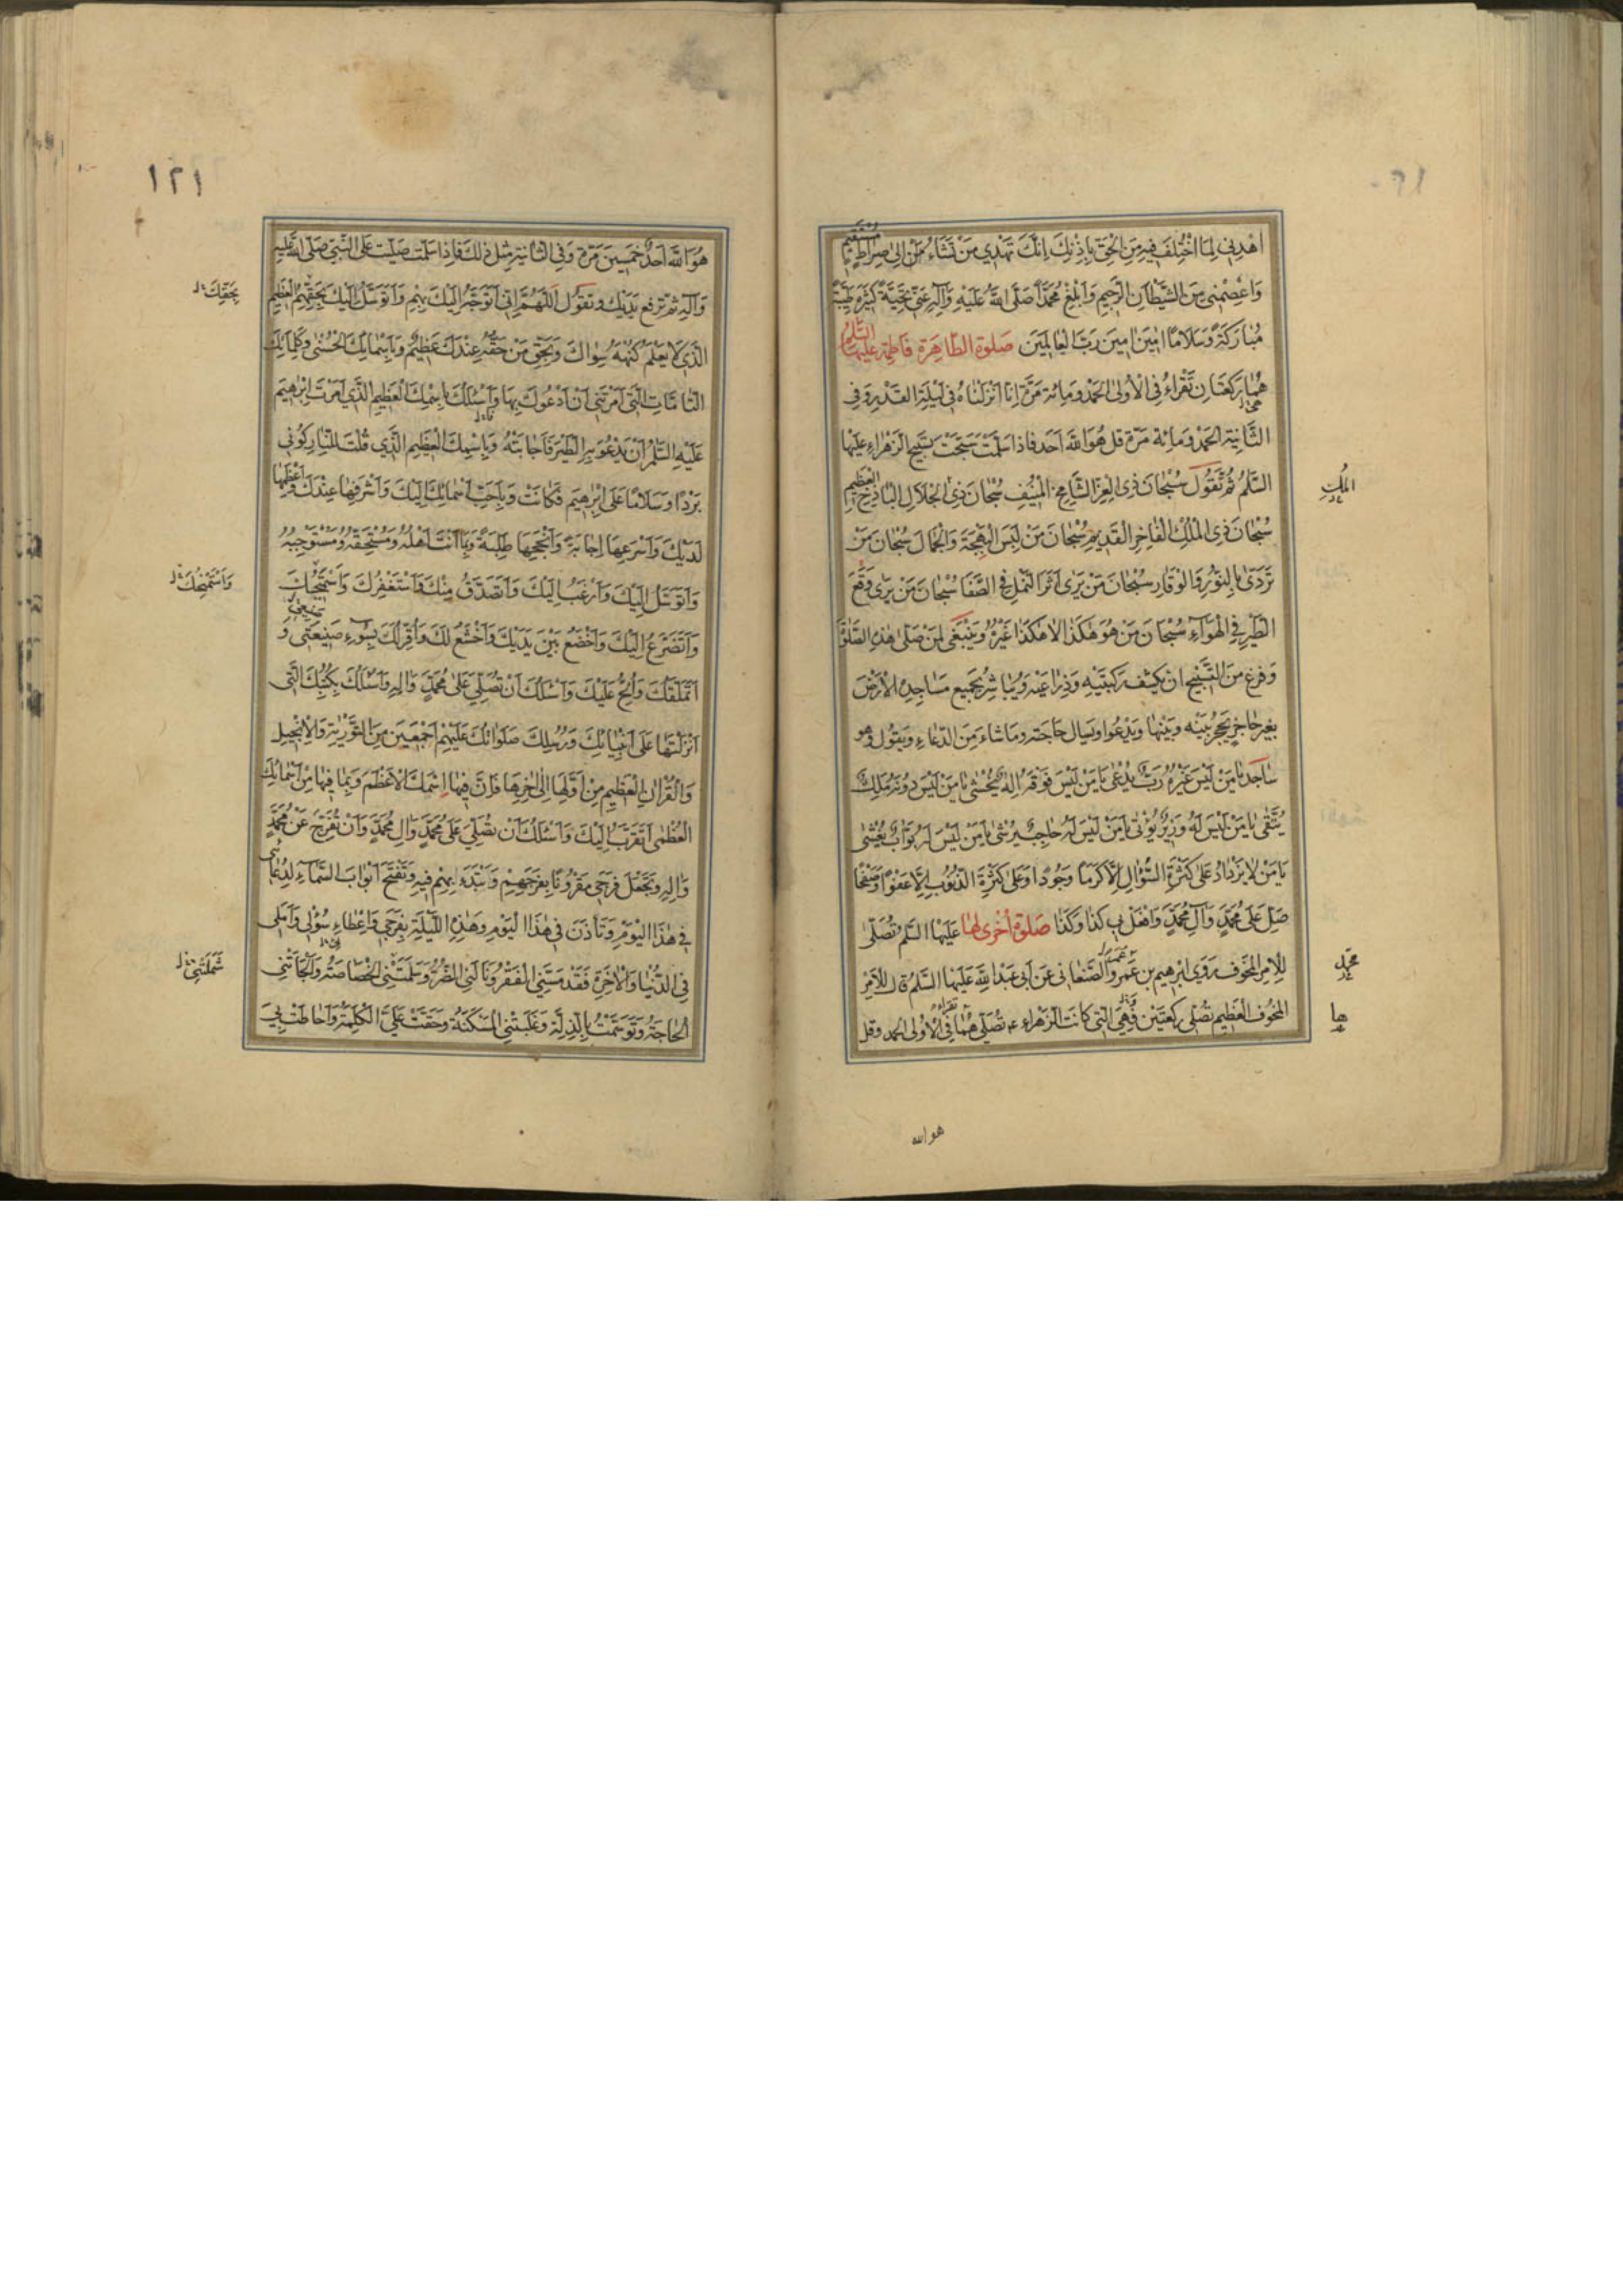 اهْدِنِي لِمَا اخْتُلِفَ فِيهِ مِنَ الْحَقِّ بِإِذْنِكَ إِنَّكَ تَهْدِي مَنْ تَشَاءُ إِلىٰ صِرَاطٍ مُسْتَقِيمٍ
وَاعْصِمْنِي مِنَ الشَّيْطَانِ الرَّجِيمِ وَأَبْلِغْ مُحَمَّدًا صَلَّى اللَّهُ عَلَيْهِ وَآلِهِ عَنِّي تَحِيَّةً كَثِيرَةً طَيِّبَةً
مُبَارَكَةً وَسَلَامًا آمِينَ آمِينَ رَبَّ الْعَالَمِينَ صَلٰوة الطَّاهِرَة فَاطِمَة عَلَيْهَا السَّلَمُ
هُمَا رَكْعَتَانِ تَقْرَاءُ فِي الْأُولَى الْحَمْدَ وَمِائَة مَرَّة اِنَّا أَنْزَلْنَاهُ فِي لَيْلَةِ الْقَدْرِ وَفِي
الثَّانِيَة الْحَمْدَ وَمِائَة مَرَّة قل هُوَ اللَّهُ أَحَد فاذا سَلَّمْتَ سَبَّحْتَ تَسْبِيحَ الزَّهْرَاءِ عَلَيْهَا
السَّلَمُ ثُمَّ تَقُولُ سُبْحَانَ ذِي الْعِزِّ الشَّامِخِ الْمُنِيفِ سُبْحَانَ ذِي الْجَلَالِ الْبَاذِخِ الْعَظِيمِ
سُبْحَانَ ذِي الْمُلْكِ الْفَاخِرِ الْقَدِيمِ سُبْحَانَ مَنْ لَبِسَ الْبَهْجَةَ وَالْجَمَالَ سُبْحَانَ مَنْ
تَرَدّىٰ بِالنُّورِ وَالْوَقَارِ سُبْحَانَ مَنْ يَرىٰ أَثَرَ النَّمْلِ فِي الصَّفَا سُبْحَانَ مَنْ يَرىٰ وَقْعَ
الطَّيْرِ فِي الْهَوَاءِ سُبْحَانَ مَنْ هُوَ هٰكَذَا لَا هٰكَذَا غَيْرُهُ وَيَنْبَغِي لِمَنْ صَلّىٰ هٰذِهِ الصَّلٰوةَ
وَفَرغَ مِنَ التَّسْبِيحِ ان يَكْشِفَ رُكْبَتَيْهِ وَذِرَاعَيْهِ وَيُبَاشِرَ بِجَمِيعِ مَسَاجِدِهِ الْأَرْضَ
بِغَيْرِ حَاجِزٍ يَحْجُزُ بَيْنَه وَبَيْنَهَا وَيَدْعُوا وَيَسْأَلَ حَاجَتَه وَمَا شَاءَ مِنَ الدُّعَاءِ وَيَقُولَ وَهو
سَاجِد يَا مَنْ لَيْسَ غَيْرَهُ رَبٌّ يُدْعىٰ يَا مَنْ لَيْسَ فَوْقَهُ إِلٰهٌ يُخْشىٰ يَا مَنْ لَيْسَ دُونَهُ مَلِكٌ
يُتَّقىٰ يَا مَنْ لَيْسَ لَهُ وَزِيرٌ يُؤْتىٰ يَا مَنْ لَيْسَ لَهُ حَاجِبٌ يُرْشىٰ يَا مَنْ لَيْسَ لَهُ بَوَّابٌ يُغْشىٰ
يَا مَنْ لَا يَزْدَادُ عَلىٰ كَثْرَةِ السُّؤَالِ إِلَّا كَرَمًا وَجُودًا وَعَلىٰ كَثْرَةِ الذُّنُوبِ إِلَّا عَفْوًا وَصَفْحًا
صَلِّ عَلىٰ مُحَمَّدٍ وَآلِ مُحَمَّدٍ وَافْعَلْ بِي كَذَا وَكَذَا صَلٰوة أُخْرىٰ لَهَا عَلَيْهَا السَّلَم تُصَلّىٰ
لِلْأَمْرِ الْمَخُوفِ رَوىٰ إِبْرٰهِيم بن عُمَر الصَّنْعَانِي عَنْ أَبِي عَبْدِ اللَّهِ عَلَيْهِمَا السَّلَمُ قال لِلْأَمْرِ
الْمَخُوفِ الْعَظِيم تُصَلّي رَكْعَتَيْن وَهِيَ الَّتِي كَانَت الزَّهْرَاء تُصَلِّيهَا فِي الْأُولىٰ الحمد وقل
الْمُلْكِ
محمد
ها
هو الله
١٢١
هُوَ اللَّه أَحَدٌ خَمْسِينَ مَرَّة وَفِي الثَّانِيَة مِثْل ذٰلكَ فَإِذَا سَلَّمْتَ صَلَّيْتَ عَلَى النَّبِيِّ صَلَّى اللَّه عَلَيْهِ
وَآلِهِ ثُمَّ تَرْفَع يَدَيْكَ وَتَقُولُ اَللَّهُمَّ إِنِّي أَتَوَجَّهُ إِلَيْكَ بِهِمْ وَأَتَوَسَّلُ إِلَيْكَ بِحَقِّهِمُ الْعَظِيمِ
الَّذِي لَا يَعْلَمُ كُنْهَهُ سِوَاكَ وَبِحَقِّ مَنْ حَقُّهُ عِنْدَكَ عَظِيمٌ وَبِأَسْمَائِكَ الْحُسْنىٰ وَكَلِمَاتِكَ
التَّامَّاتِ الَّتِي أَمَرْتَنِي أَنْ أَدْعُوَكَ بِهَا وَأَسْئَلُكَ بِاسْمِكَ الْعَظِيمِ الَّذِي أَمَرْتَ إِبْرٰهِيمَ
عَلَيْهِ السَّلَمُ أَنْ يَدْعُوَ بِهِ الطَّيْرَ فَأَجَابَتْهُ وَبِاسْمِكَ الْعَظِيمِ الَّذِي قُلْتَ لِلنَّارِ كُونِي
بَرْدًا وَسَلَامًا عَلىٰ إِبْرٰهِيمَ فَكَانَتْ وَبِأَحَبِّ أَسْمَائِكَ إِلَيْكَ وَأَشْرَفِهَا عِنْدَكَ وَأَعْظَمِهَا
لَدَيْكَ وَأَسْرَعِهَا إِجَابَةً وَأَنْجَحِهَا طَلِبَةً وَبِمَا أَنْتَ أَهْلُهُ وَمُسْتَحِقُّهُ وَمُسْتَوْجِبُهُ
وَأَتَوَسَّلُ إِلَيْكَ وَأَرْغَبُ إِلَيْكَ وَأَتَصَدَّقُ مِنْكَ وَأَسْتَغْفِرُكَ وَأَسْتَمِيحُكَ
وَأَتَضَرَّعُ إِلَيْكَ وَأَخْضَعُ بَيْنَ يَدَيْكَ وَأَخْشَعُ لَكَ وَأُقِرُّ لَكَ بِسُوءِ صَنِيعَتِي وَ
أَتَمَلَّقُكَ وَأُلِحُّ عَلَيْكَ وَأَسْئَلُكَ أَنْ تُصَلِّيَ عَلىٰ مُحَمَّدٍ وَآلِهِ وَأَسْئَلُكَ بِكُتُبِكَ الَّتِي
أَنْزَلْتَهَا عَلىٰ أَنْبِيَائِكَ وَرُسُلِكَ صَلَوَاتُكَ عَلَيْهِمْ أَجْمَعِينَ مِنَ التَّوْرٰيةِ وَالْإِنْجِيلِ
وَالْقُرْآنِ الْعَظِيمِ مِنْ أَوَّلِهَا إِلىٰ آخِرِهَا فَإِنَّ فِيهَا اسْمَكَ الْأَعْظَمَ وَبِمَا فِيهَا مِنْ أَسْمَائِكَ
الْعُظْمىٰ أَتَقَرَّبُ إِلَيْكَ وَأَسْئَلُكَ أَنْ تُصَلِّيَ عَلىٰ مُحَمَّدٍ وَآلِ مُحَمَّدٍ وَأَنْ تُفَرِّجَ عَنْ مُحَمَّدٍ
وَآلِهِ وَتَجْعَلَ فَرَجِي مَقْرُونًا بِفَرَجِهِمْ وَتَبْتَدِءَ بِهِمْ فِيهِ وَتَفْتَحَ أَبْوَابَ السَّمَاءِ لِدُعَائِي
فِي هٰذَا الْيَوْمِ وَتَأْذَنَ فِي هٰذَا الْيَوْمِ وَهٰذِهِ اللَّيْلَةِ بِفَرَجِي وَإِعْطَاءِ سُؤْلِي وَأَمَلِي
فِي الدُّنْيَا وَالْآخِرَةِ فَقَدْ مَسَّنِي الْفَقْرُ وَنَالَنِي الضُّرُّ وَسَلَّمَتْنِي الْخَصَاصَةُ وَأَلْجَأَتْنِي
الْحَاجَةُ وَتَوَسَّمْتُ بِالذِّلَّةِ وَغَلَبَتْنِي الْمَسْكَنَةُ وَحَقَّتْ عَلَيَّ الْكَلِمَةُ وَأَحَاطَتْ بِيَ
بِحَقِّكَ
وَأَسْتَمْنِحُكَ
شَمَلَتْنِي